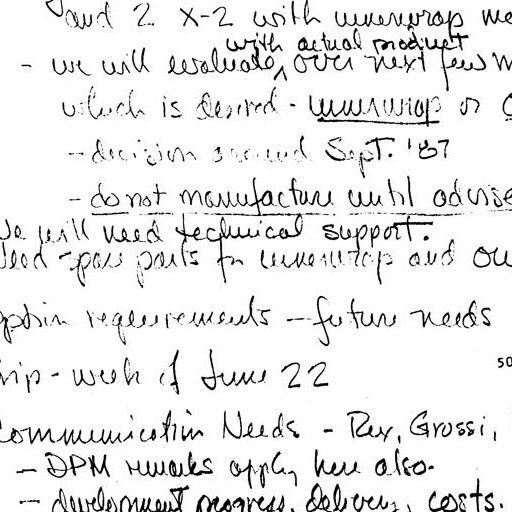 and 2 X-2 with innerwrap
with actual product
- we will evaluate, over next few
which is desired - innerwrap or
- decision around Sept. '87
- do not manufacture until advise
We will need technical support.
Need spare parts for innerwrap and ou
ption requirements - future needs
rip - week of June 22
50
Communication Needs - Rex, Grossi,
- DPM remarks apply here also.
- development progress, delivery, costs.